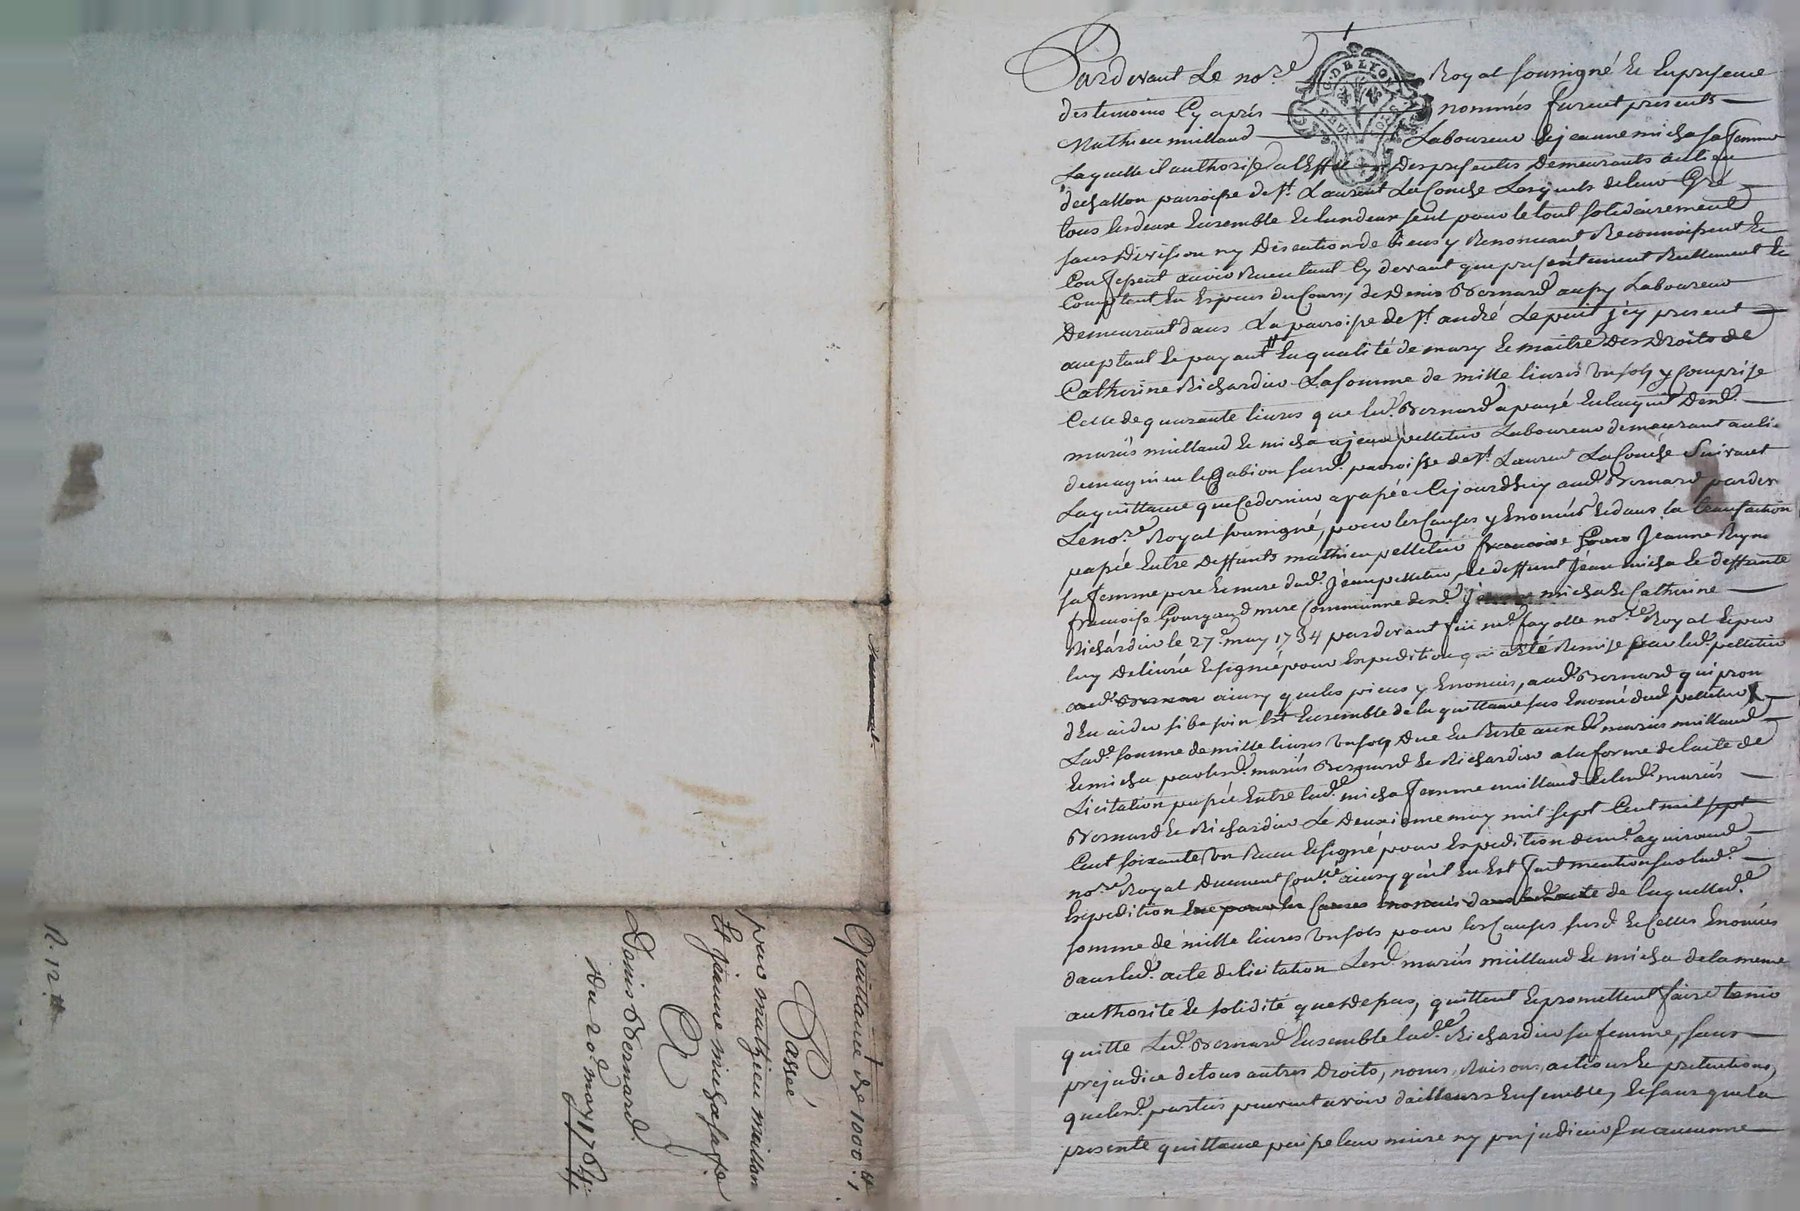 Pardevant Le no.re Royal soussigné Et En presence
des temoins Cy aprés nommés furent presents
Mathieu millaud Laboureur Et jeanne micha sa femme
Laquelle il authorise a Leffet Des presentes Demeurants au lieu
dechallon parroisse de St. Laurent La Conche Lesquels de leur Gré
tous les deux Ensemble Et lun deux seul pour le tout solidairement
sans Division ny Discution de biens y Renoncant Reconnoissent Et
Confessent avoir Receu tant Cy devant que presentement Reellement Et
Comptant En Especes du Cours, de Denis Bernard aussy Laboureur
Demeurant dans La parroisse de St. andré Le puit jcy present
acceptant Et payant En qualité de mary Et maitre Des Droits de
Catherine Richardier La somme de mille livres un sols y Comprise
Celle de quarante livres que led. Bernard a payé En lacquit Desd.
mariés millaud Et micha a jean pelletier Laboureur demeurant au lieu
de magnieu le Gabion susd. parroisse de St. Laurent La Conche Suivant
La quittance que Ce dernier a passée Cejourdhuy aud. Bernard pardev
Le no.re Royal soussigné, pour les Causes y Enoncées Et dans la transaction
passée Entre Deffunts mathieu pelletier Jeanne Reyne
sa femme pere Et mere dud. Jean pelletier, Et deffunt Jean micha Et deffunte
francoise Gourgaud mere Commune desd. micha Et Catherine
Richardier le 27.e may 1734 pardevant feu me. fayolle no.re Royal Et par
luy Delivrée Et signé pour Expedition qui a Eté Remise par led. pelletier
aud. Bernard ainsy que les pieces y Enoncées, aud. Bernard qui pron
dEn aider si besoin Est Ensemble de la quittance sus Enoncé dud. pelletier
Lad.e somme de mille livres un sols Due En Reste auxd. mariés millaud
Et micha par lesd. mariés Bernard Et Richardier a la forme de lacte de
Licitation passée Entre lad.e micha femme millaud Et lesd. mariés
Bernard Et Richardier Le Deuxieme may mil sept Cent mil sept
Cent soixante un Receu Et signé pour Expedition de me.
no.re Royal Duement Contllé ainsy quil En Est fait mention sur lad.e
Expedition Et pour les Causes Enoncées dans led. acte de laquelle d.e
somme de mille livres un sols pour les Causes susd. Et Celles Enoncées
dans led. acte de licitation Lesd. mariés millaud Et micha de la meme
authorité Et solidité que dessus, quittent Et promettent faire tenir
quitte Led. Bernard Ensemble lad.e Richardier sa femme, sans
prejudice de tous autres Droits, noms, Raisons, actions Et pretentions,
que lesd. parties peuvent avoir dailleurs Ensemble, Et sans que la
presente quittance puisse leur nuire ny prejudicier En aucunne
Quittance de 1000 tt 1s
Passée
par mathieu millan
Et jeanne micha sa fe
A
Denis Bernard.
Du 20e may 1764
R. 12 tt